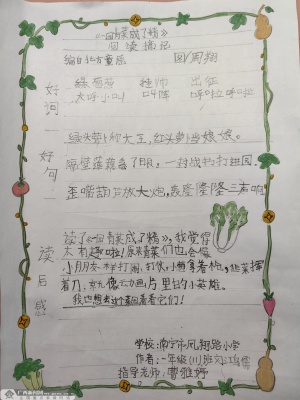 《一园青菜成了精》
阅读摘记
编自北方童谣 图/周翔
好词
绿葱葱 挂帅 出征
大呼小叫 叫阵 呼啦呼啦
好句
绿头萝卜称大王,红头萝卜当娘娘。
隔壁莲藕急了眼,一封战书打进园。
歪嘴葫芦放大炮,轰隆隆隆三声响
读后感
读了《一园青菜成了精》,我觉得
太有趣啦!原来青菜们也会像
小朋友一样打闹,打仗,小葱拿着枪,韭菜挥
着刀,就像动画片里的小英雄。
我也想去这个菜园看看它们!
学校:南宁市凤翔路小学
作者:一年级(11)班
指导老师:曹雅婷